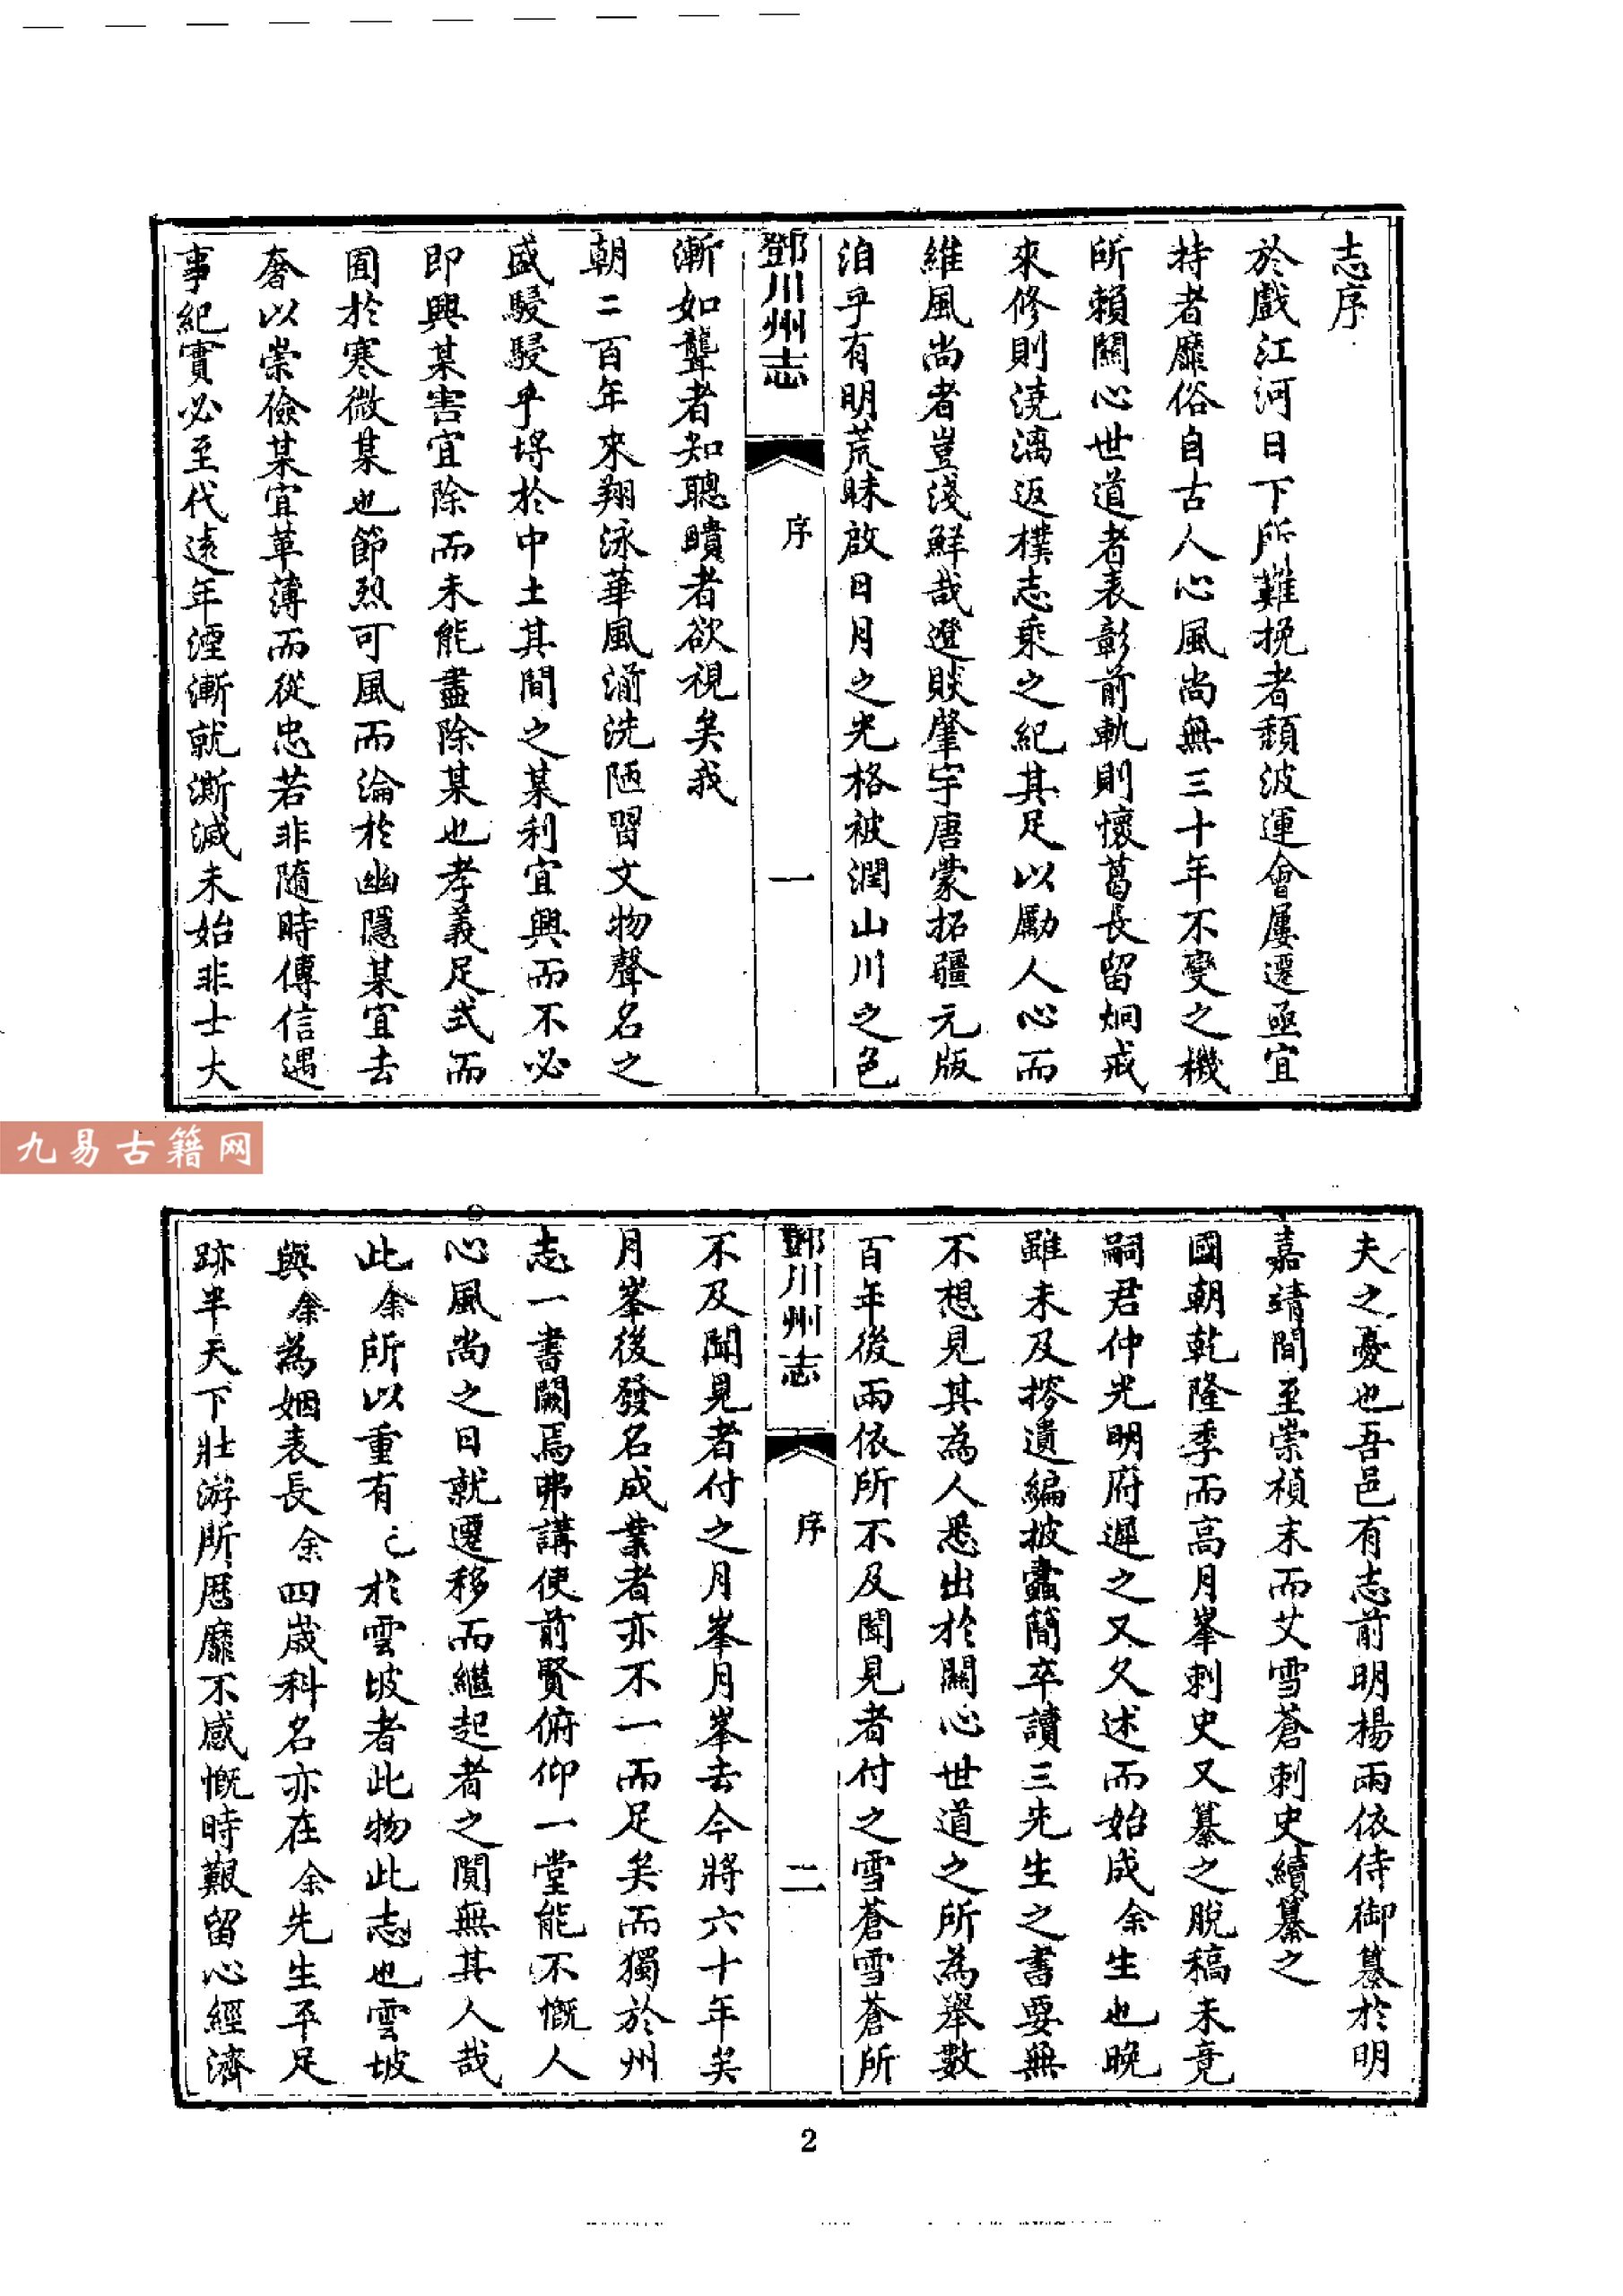 志序
於戲江河日下所難挽者頹波運會屢遷亟宜
持者靡俗自古人心風尚無三十年不變之機
所賴關心世道者表彰前軌則懷葛長留炯戒
來修則澆漓返樸志乘之紀其足以勵人心而
維風尚者豈淺鮮哉邆賧肇宇唐蒙拓疆元版
洎乎有明荒昧啟日月之光格被潤山川之色
鄧川州志
序
一
漸如聾者知聰瞶者欲視矣我
朝二百年來翔泳華風湔洗陋習文物聲名之
盛駸駸乎埒於中土其間之某利宜興而不必
即興某害宜除而未能盡除某也孝義足式而
囿於寒微某也節烈可風而淪於幽隱某宜去
奢以崇儉某宜革薄而從忠若非隨時傳信遇
事紀實必至代遠年湮漸就澌滅未始非士大
九易古籍网
夫之憂也吾邑有志前明楊兩依侍御纂於明
嘉靖間至崇楨末而艾雪蒼刺史續纂之
國朝乾隆季而高月峯刺史又纂之脫稿未竟
嗣君仲光明府遲之又久述而始成余生也晚
雖未及搭遺編披蠹簡卒讀三先生之書要無
不想見其為人悉出於關心世道之所為舉數
百年後兩依所不及聞見者付之雪蒼雪蒼所
鄧川州志
序
二
不及聞見者付之月峯月峯去今將六十年矣
月峯後發名成業者亦不一而足矣而獨於州
志一書闕焉弗講使前賢俯仰一堂能不慨人
心風尚之日就遷移而繼起者之閴無其人哉
此余所以重有心於雲坡者此物此志也雲坡
與余為姻表長余四歲科名亦在余先生平足
跡半天下壯游所歷靡不感慨時艱留心經濟
2